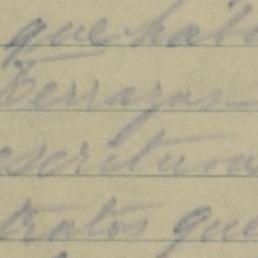 que hab
Terrazas
escritura
tratos que